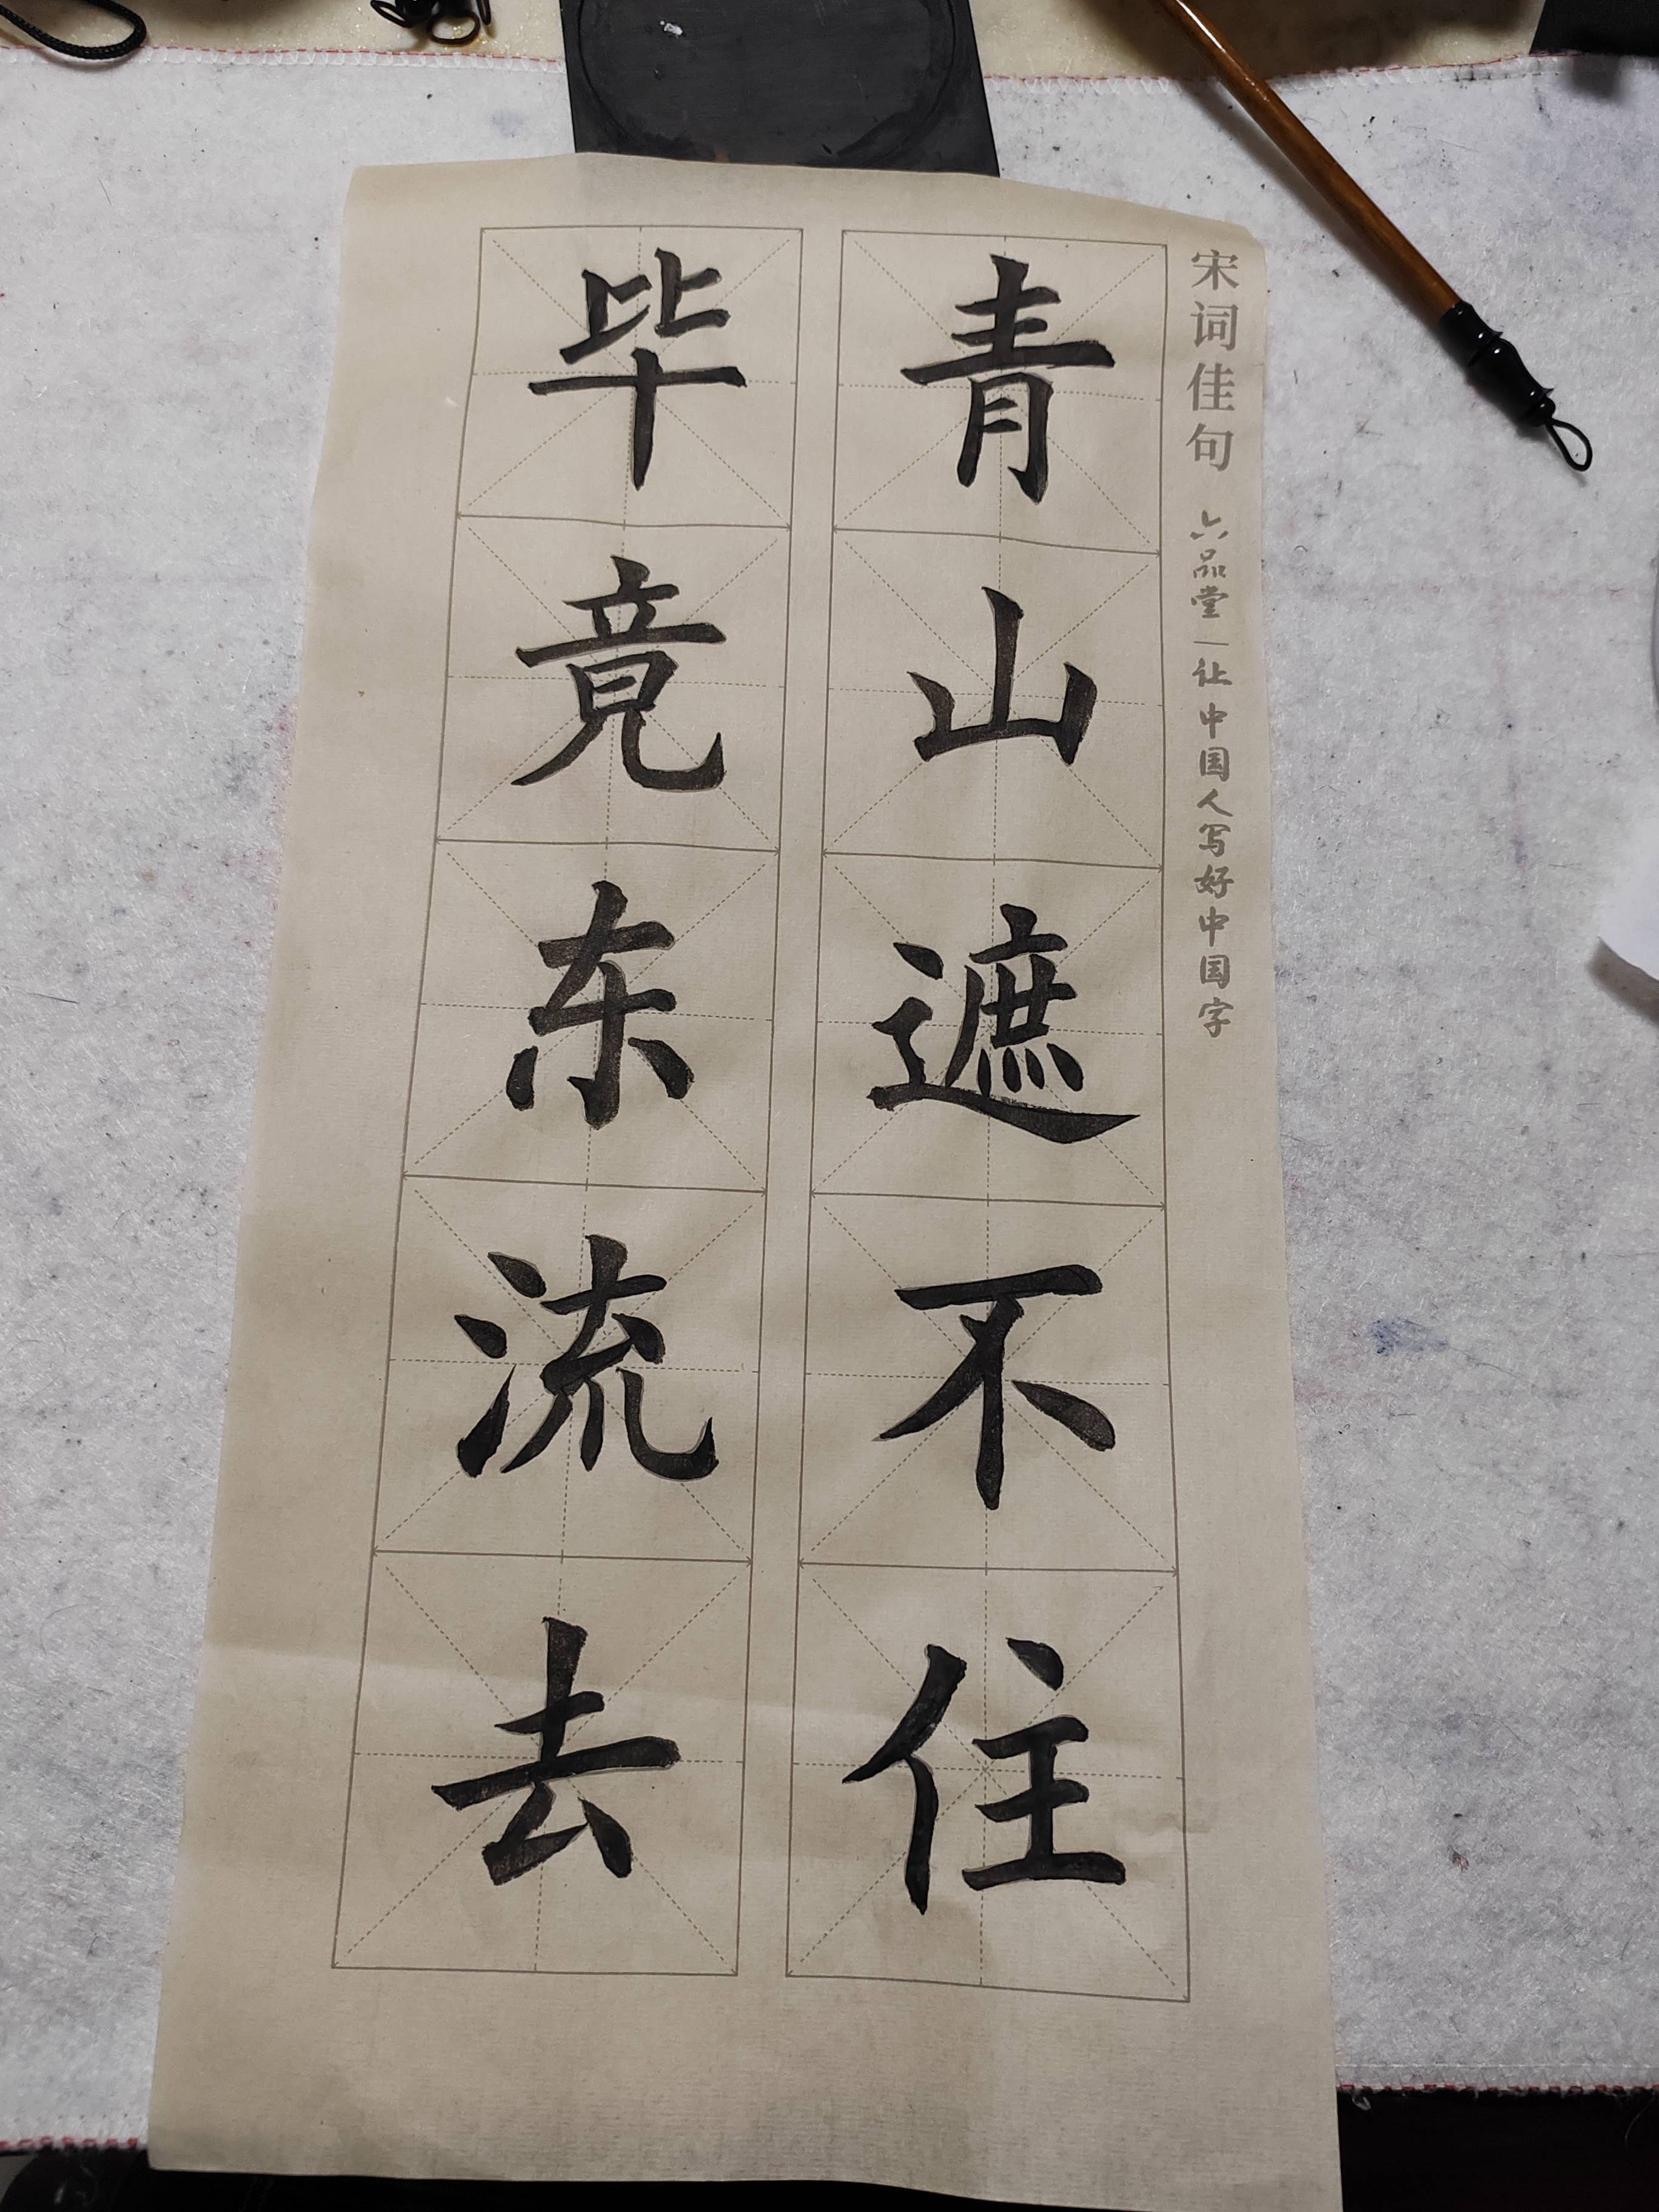 宋词佳句 六品堂—让中国人写好中国字
青山遮不住
毕竟东流去